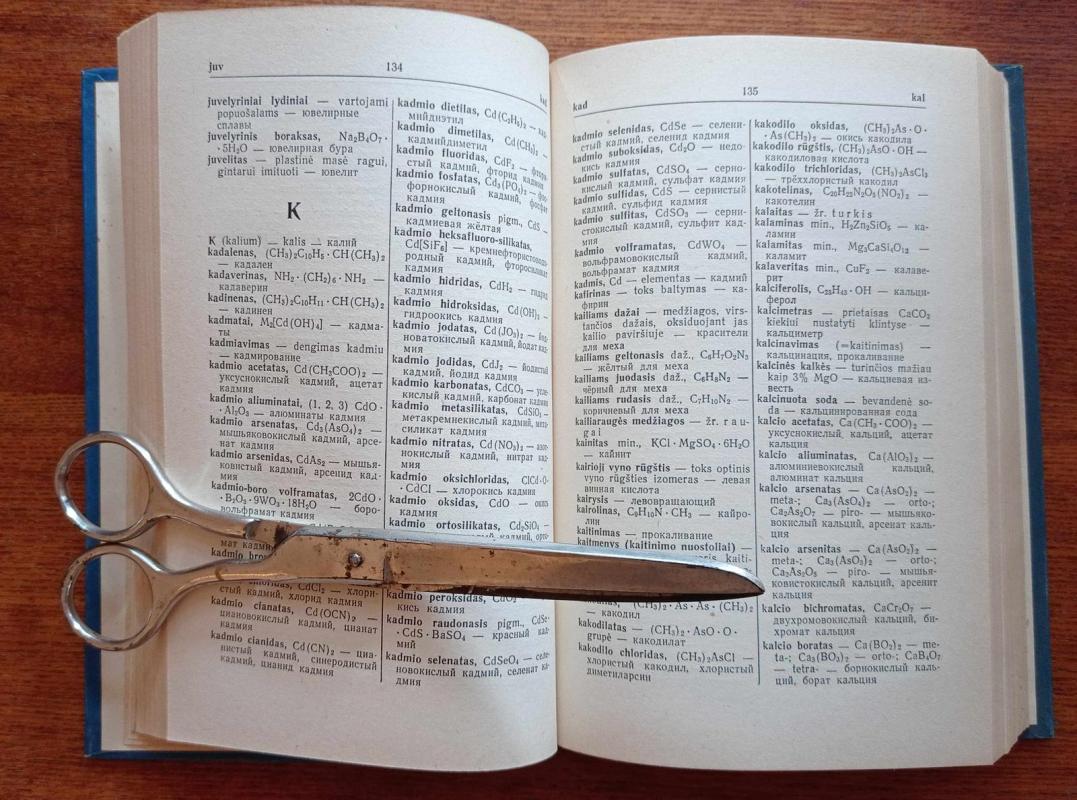 juv 134 kal
juvelyriniai lydiniai — vartojami
popuošalams — ювелирные
сплавы
juvelyrinis boraksas, Na₂B₄O₇·
·5H₂O — ювелирная бура
juvelitas — plastinė masė ragui,
gintarui imituoti — ювелит
K
K (kalium) — kalis — калий
kadalenas, (CH₃)₂C₁₀H₅·CH(CH₃)₂
— кадален
kadaverinas, NH₂·(CH₂)₅·NH₂ —
кадаверин
kadinenas, (CH₃)₂C₁₀H₁₁·CH(CH₃)₂
— кадинен
kadmatai, M₂[Cd(OH)₄] — кадма-
ты
kadmiavimas — dengimas kadmiu
— кадмирование
kadmio acetatas, Cd(CH₃COO)₂ —
уксуснокислый кадмий, ацетат
кадмия
kadmio aliuminatai, (1, 2, 3) CdO·
·Al₂O₃ — алюминаты кадмия
kadmio arsenatas, Cd₃(AsO₄)₂ —
мышьяковокислый кадмий, арсе-
нат кадмия
kadmio arsenidas, CdAs₂ — мышья-
ковистый кадмий, арсенид кад-
мия
kadmio-boro volframatas, 2CdO·
·B₂O₃·9WO₃·18H₂O — боро-
вольфрамат кадмия
мат кадмия
kadmio
chloridas, CdCl₂ — хлори-
стый кадмий, хлорид кадмия
kadmio cianatas, Cd(OCN)₂ —
циановокислый кадмий, цианат
кадмия
kadmio cianidas, Cd(CN)₂ — циа-
нистый кадмий, синеродистый
кадмий, цианид кадмия
kadmio dietilas, Cd(C₂H₅)₂ — кад-
мийдиэтил
kadmio dimetilas, Cd(CH₃)₂ —
кадмийдиметил
kadmio fluoridas, CdF₂ — фтори-
стый кадмий, фторид кадмия
kadmio fosfatas, Cd₃(PO₄)₂ — фос-
форнокислый кадмий, фосфат
кадмия
kadmio geltonasis pigm., CdS —
кадмиевая жёлтая
kadmio heksafluoro-silikatas,
Cd[SiF₆] — кремнефтористоводо-
родный кадмий, фторосиликат
кадмия
kadmio hidridas, CdH₂ — гидрид
кадмия
kadmio hidroksidas, Cd(OH)₂ —
гидроокись кадмия
kadmio jodatas, Cd(JO₃)₂ — йод-
новатокислый кадмий, йодат кад-
мия
kadmio jodidas, CdJ₂ — йодистый
кадмий, йодид кадмия
kadmio karbonatas, CdCO₃ — угле-
кислый кадмий, карбонат кадмия
kadmio metasilikatas, CdSiO₃ —
метакремнекислый кадмий, мета-
силикат кадмия
kadmio nitratas, Cd(NO₃)₂ — азот-
нокислый кадмий, нитрат кад-
мия
kadmio oksichloridas, ClCd·O·
·CdCl — хлорокись кадмия
kadmio oksidas, CdO — окись
кадмия
kadmio ortosilikatas, Cd₂SiO₄ —
kadmio peroksidas, CdO₂ —
кись кадмия
kadmio raudonasis pigm., CdSe·
·CdS·BaSO₄ — красный кад-
мий
kadmio selenatas, CdSeO₄ — селе-
новокислый кадмий, селенат ка-
дмия
kad 135 kal
kadmio selenidas, CdSe — селени-
стый кадмий, селенид кадмия
kadmio suboksidas, Cd₂O — недо-
кись кадмия
kadmio sulfatas, CdSO₄ — серно-
кислый кадмий, сульфат кадмия
kadmio sulfidas, CdS — сернистый
кадмий, сульфид кадмия
kadmio sulfitas, CdSO₃ — серни-
стокислый кадмий, сульфит кад-
мия
kadmio volframatas, CdWO₄ —
вольфрамовокислый кадмий,
вольфрамат кадмия
kadmis, Cd — elementas — кадмий
kafirinas — toks baltymas — ка-
фирин
kailiams dažai — medžiagos, virs-
tančios dažais, oksiduojant jas
kailio paviršiuje — красители
для меха
kailiams geltonasis daž., C₆H₇O₂N₃
— жёлтый для меха
kailiams juodasis daž., C₆H₈N₂ —
чёрный для меха
kailiams rudasis daž., C₇H₁₀N₂ —
коричневый для меха
kailiaraugės medžiagos — žr. rau-
gai
kainitas min., KCl·MgSO₄·6H₂O
— каинит
kairioji vyno rūgštis — toks optinis
vyno rūgšties izomeras — левая
винная кислота
kairysis — левовращающий
kairolinas, C₉H₁₀N·CH₃ — кайро-
лин
kaitinimas — прокаливание
kaitmenys (kaitinimo nuostoliai) —
kaiti-
(CH₃)₂·As·As·(CH₃)₂
— какодил
kakodilatas — (CH₃)₂·AsO·O·
grupė — какодилат
kakodilo chloridas, (CH₃)₂AsCl —
хлористый какодил, хлористый
диметиларсин
kakodilo oksidas, (CH₃)₂As·O·
·As(CH₃)₂ — окись какодила
kakodilo rūgštis, (CH₃)₂AsO·OH —
какодиловая кислота
kakodilo trichloridas, (CH₃)₂AsCl₃
— трёххлористый какодил
kakotelinas, C₂₀H₂₂N₂O₅(NO₂)₂ —
какотелин
kalaitas — žr. turkis
kalaminas min., H₂Zn₂SiO₅ — ка-
ламин
kalamitas min., Mg₃CaSi₄O₁₂ —
каламит
kalaveritas min., CuF₂ — калаве-
рит
kalciferolis, C₂₈H₄₃·OH — кальци-
ферол
kalcimetras — prietaisas CaCO₃
kiekiui nustatyti klintyse —
кальциметр
kalcinavimas (=kaitinimas) —
кальцинация, прокаливание
kalcinės kalkės — turinčios mažiau
kaip 3% MgO — кальциевая из-
весть
kalcinuota soda — bevandenė so-
da — кальцинированная сода
kalcio acetatas, Ca(CH₃·COO)₂ —
уксуснокислый кальций, ацетат
кальция
kalcio aliuminatas, Ca(AlO₂)₂ —
алюминиевокислый кальций,
алюминат кальция
kalcio arsenatas — Ca(AsO₃)₂ —
meta-; Ca₃(AsO₄)₂ — orto-;
Ca₂As₂O₇ — piro- — мышьяко-
вокислый кальций, арсенат каль-
ция
kalcio arsenitas — Ca(AsO₂)₂ —
meta-; Ca₃(AsO₃)₂ — orto-;
Ca₂As₂O₅ — piro- — мышья-
ковистокислый кальций, арсенит
кальция
kalcio bichromatas, CaCr₂O₇ —
двухромовокислый кальций, би-
хромат кальция
kalcio boratas — Ca(BO₂)₂ — me-
ta-; Ca₃(BO₃)₂ — orto-; CaB₄O₇
— tetra- — борнокислый каль-
ций, борат кальция